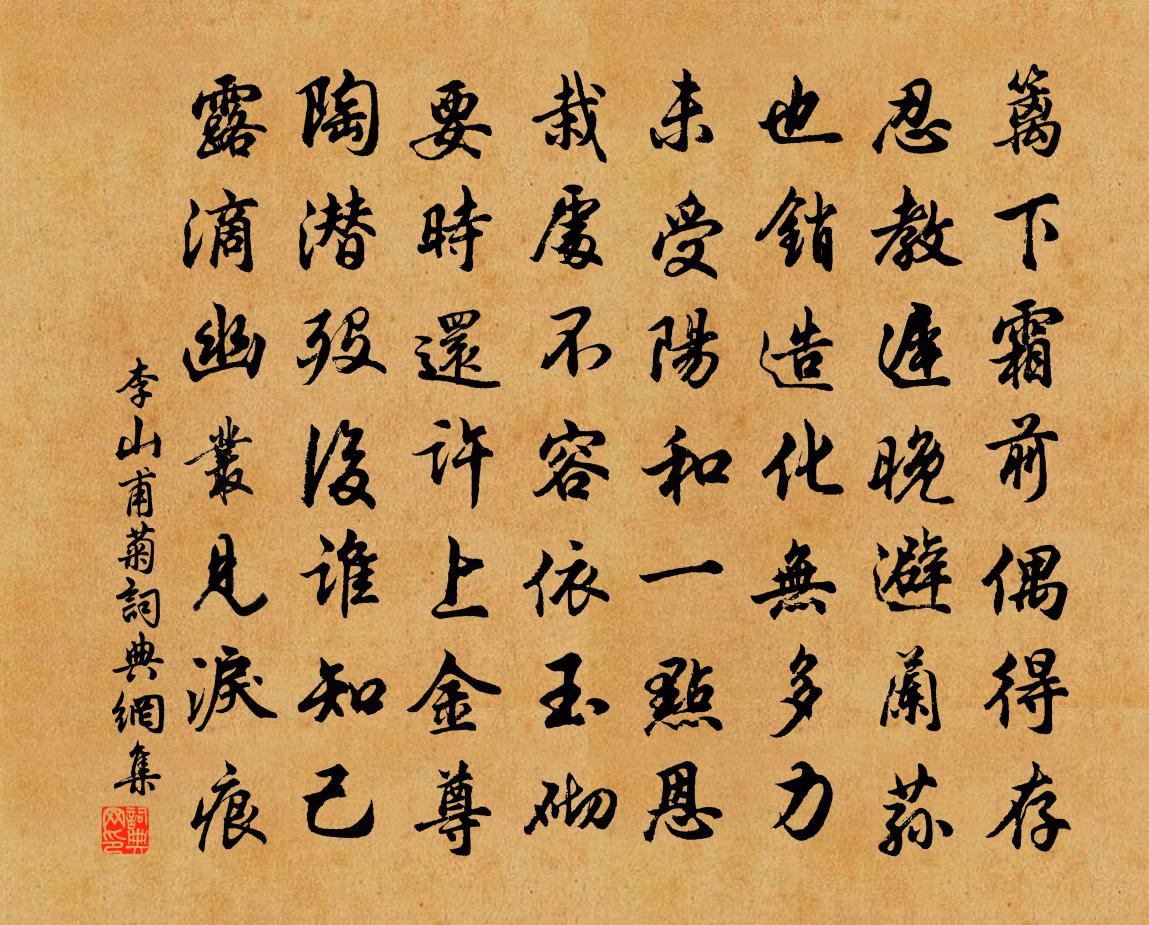 籬下霜前偶得存
忍教遲晚避蘭蓀
也銷造化無多力
未受陽和一點恩
栽處不容依玉砌
要時還許上金尊
陶潛歿後誰知己
露滴幽叢見淚痕
李山甫菊詞典網集
詞典网印